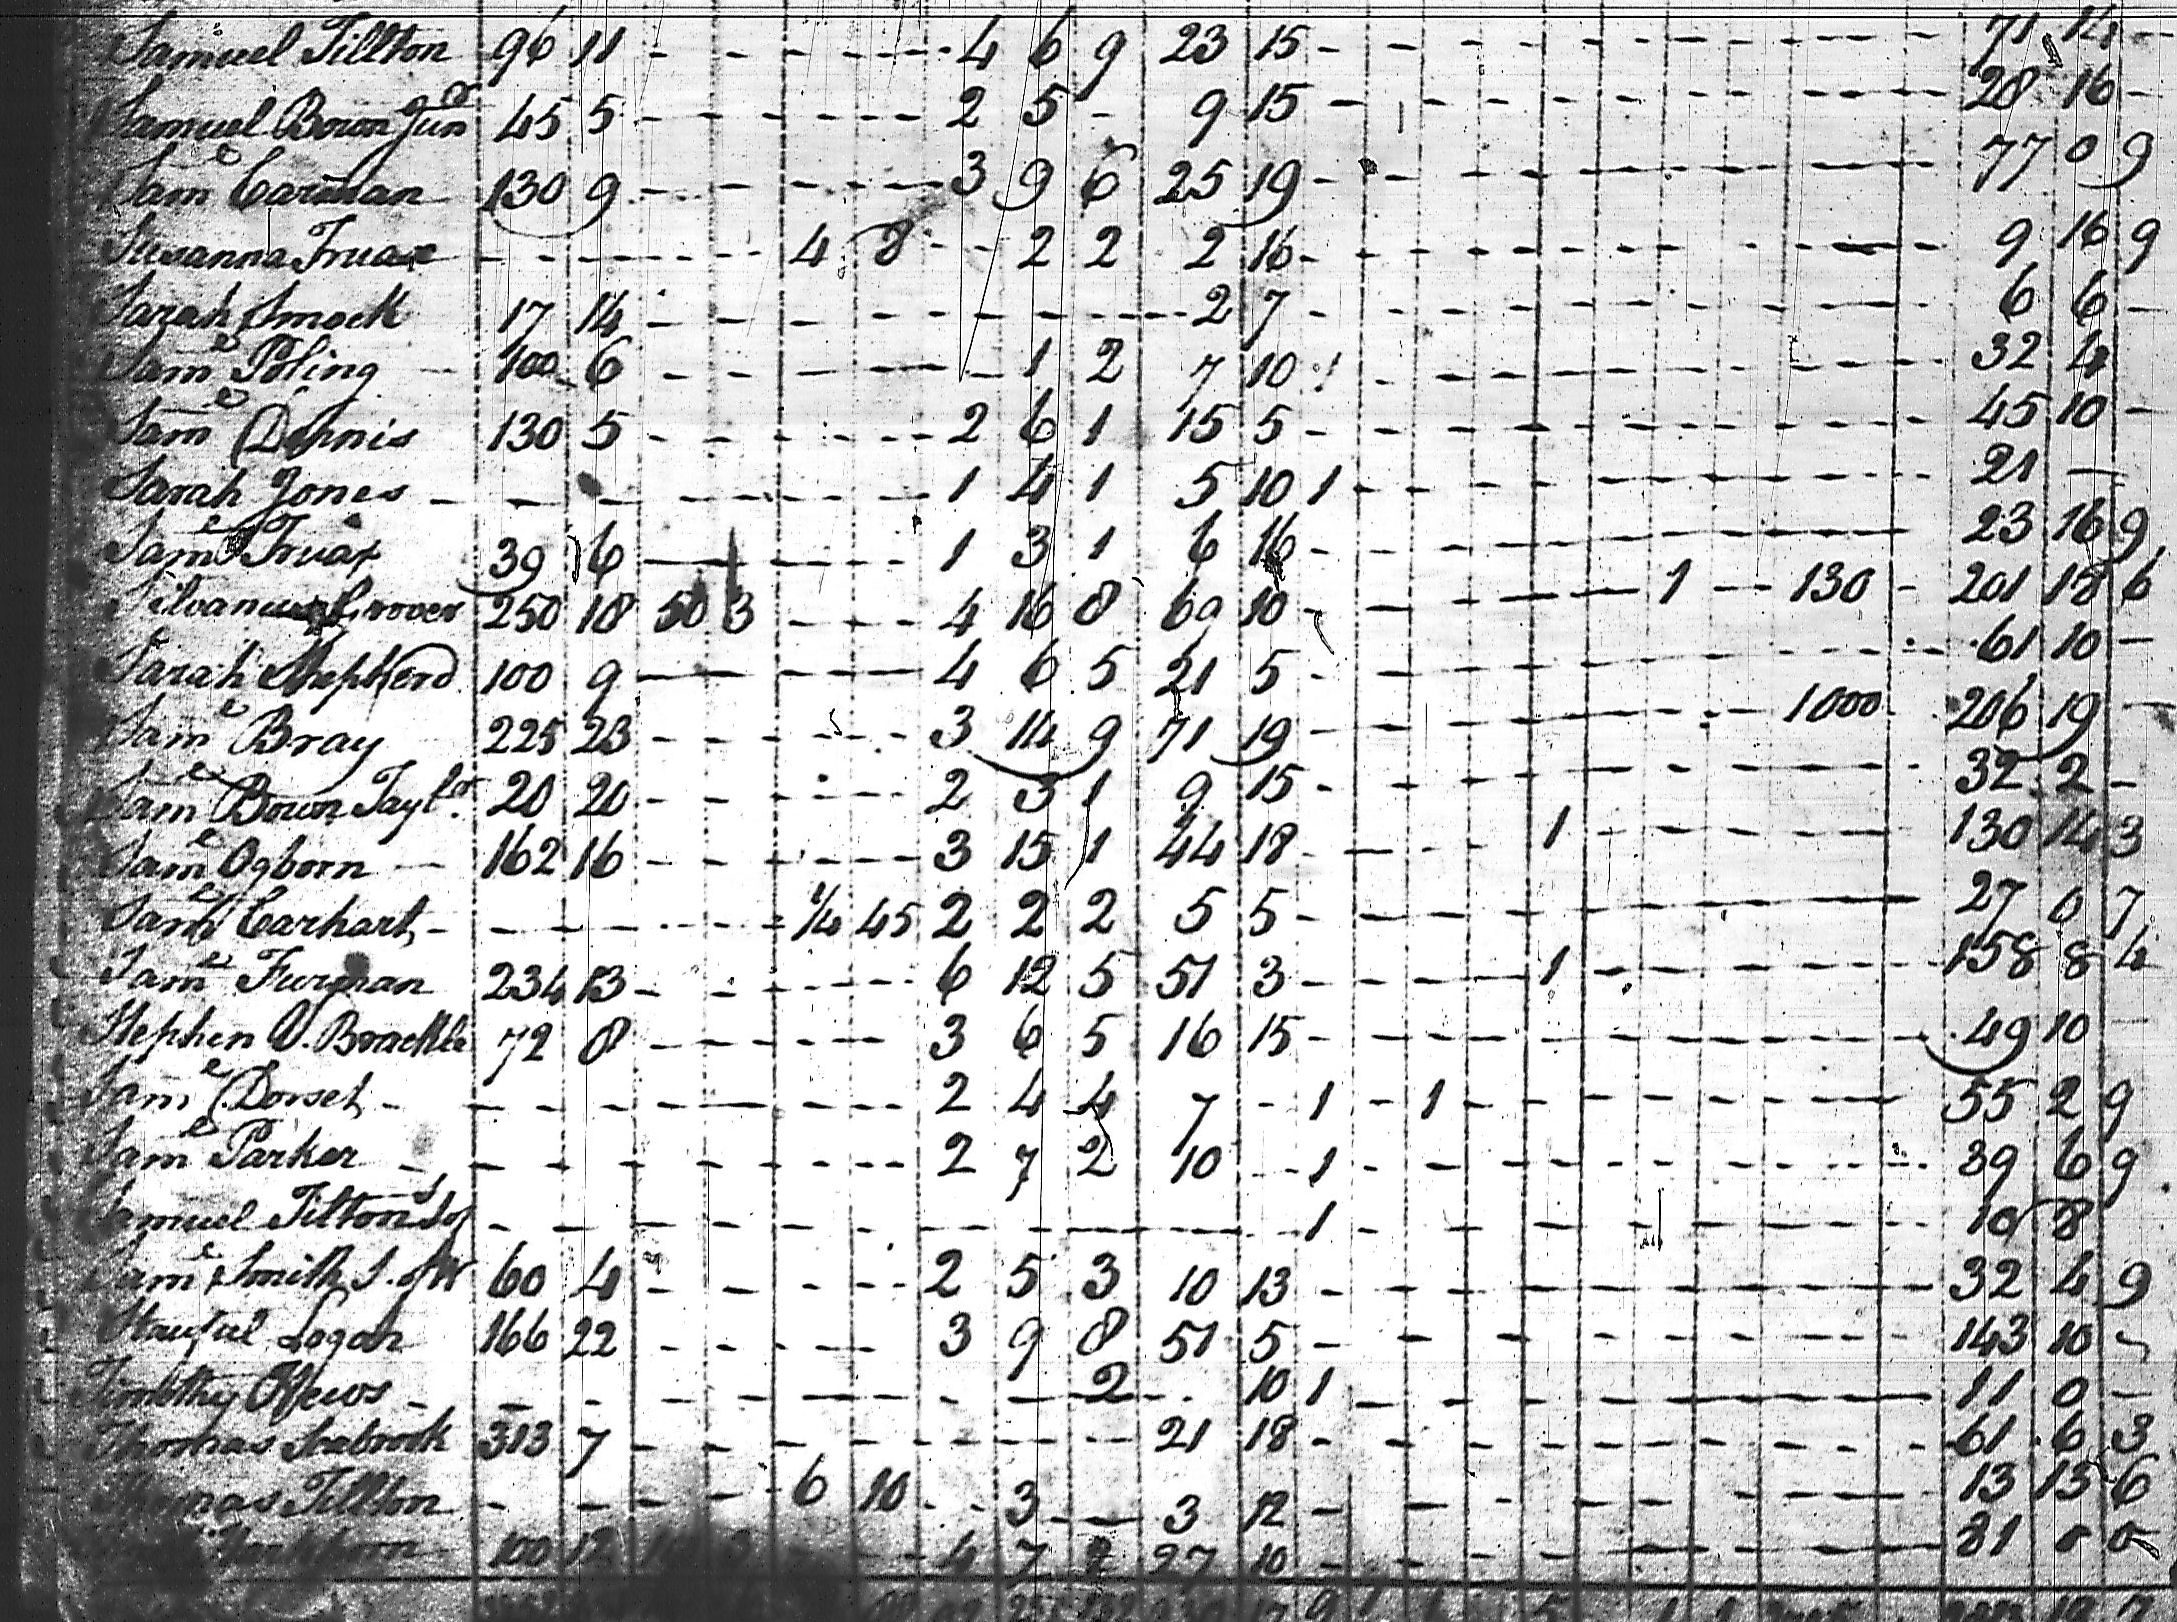 Samuel Tillton 96 11 - - - - 4 6 9 23 15 - - - - - - - - - 71 14 -
Samuel Bown Junr 45 5 - - - - 2 5 - 9 15 - - - - - - - - - 28 16 -
Saml Carman 130 9 - - - - 3 9 6 25 19 - - - - - - - - - 77 0 9
Susanna Truax - - - - 4 8 - 2 2 2 16 - - - - - - - - - 9 16 9
Sarah Smock 17 14 - - - - - - - 2 7 - - - - - - - - - 6 6 -
Saml Poling 100 6 - - - - - 1 2 7 10 1 - - - - - - - - 32 4
Saml Dennis 130 5 - - - - 2 6 1 15 5 - - - - - - - - - 45 10 -
Sarah Jones - - - - - - 1 4 1 5 10 1 - - - - - - - - 21 -
Saml Truax 39 6 - - - - 1 3 1 6 16 - - - - - - - - - 23 16 9
Silvanus Grover 250 18 50 3 - - 4 16 8 69 10 - - - - - - 1 - 130 - 201 18 6
Sarah Shepherd 100 9 - - - - 4 6 5 21 5 - - - - - - - - - 61 10 -
Saml Bray 225 23 - - - - 3 14 9 71 19 - - - - - - - - 1000 206 19 -
Saml Bown Taylr 20 20 - - - - 2 3 1 9 15 - - - - - - - - - 32 2 -
Saml Ogborn 162 16 - - - - 3 15 1 44 18 - - - - 1 - - - - 130 14 3
Saml Carhart - - - - 1/4 45 2 2 2 5 5 - - - - - - - - - 27 0 7
Saml Furman 234 13 - - - - 6 12 5 51 3 - - - - 1 - - - - 158 8 4
Stephen V. Brackle 72 8 - - - - 3 6 5 16 15 - - - - - - - - - 49 10 -
Saml Dorset - - - - - - 2 4 4 7 - 1 - 1 - - - - - - 55 2 9
Saml Parker - - - - - - 2 7 2 10 - 1 - - - - - - - - 39 6 9
Samuel Tilton - - - - - - - - - - - 1 - - - - - - - - 10 8
Saml Smith S. of W 60 4 - - - - 2 5 3 10 13 - - - - - - - - - 32 4 9
Logan 166 22 - - - - 3 9 8 51 5 - - - - - - - - - 143 10 -
Timothy - - - - - - - - 2 - 10 1 - - - - - - - - 11 0 -
Thomas Seabrook 313 7 - - - - - - - 21 18 - - - - - - - - - 61 6 3
Thomas Tillton - - - - 6 10 - 3 - 3 12 - - - - - - - - - 13 13 6
100 12 4 7 27 10 - - - - - - - - - 81